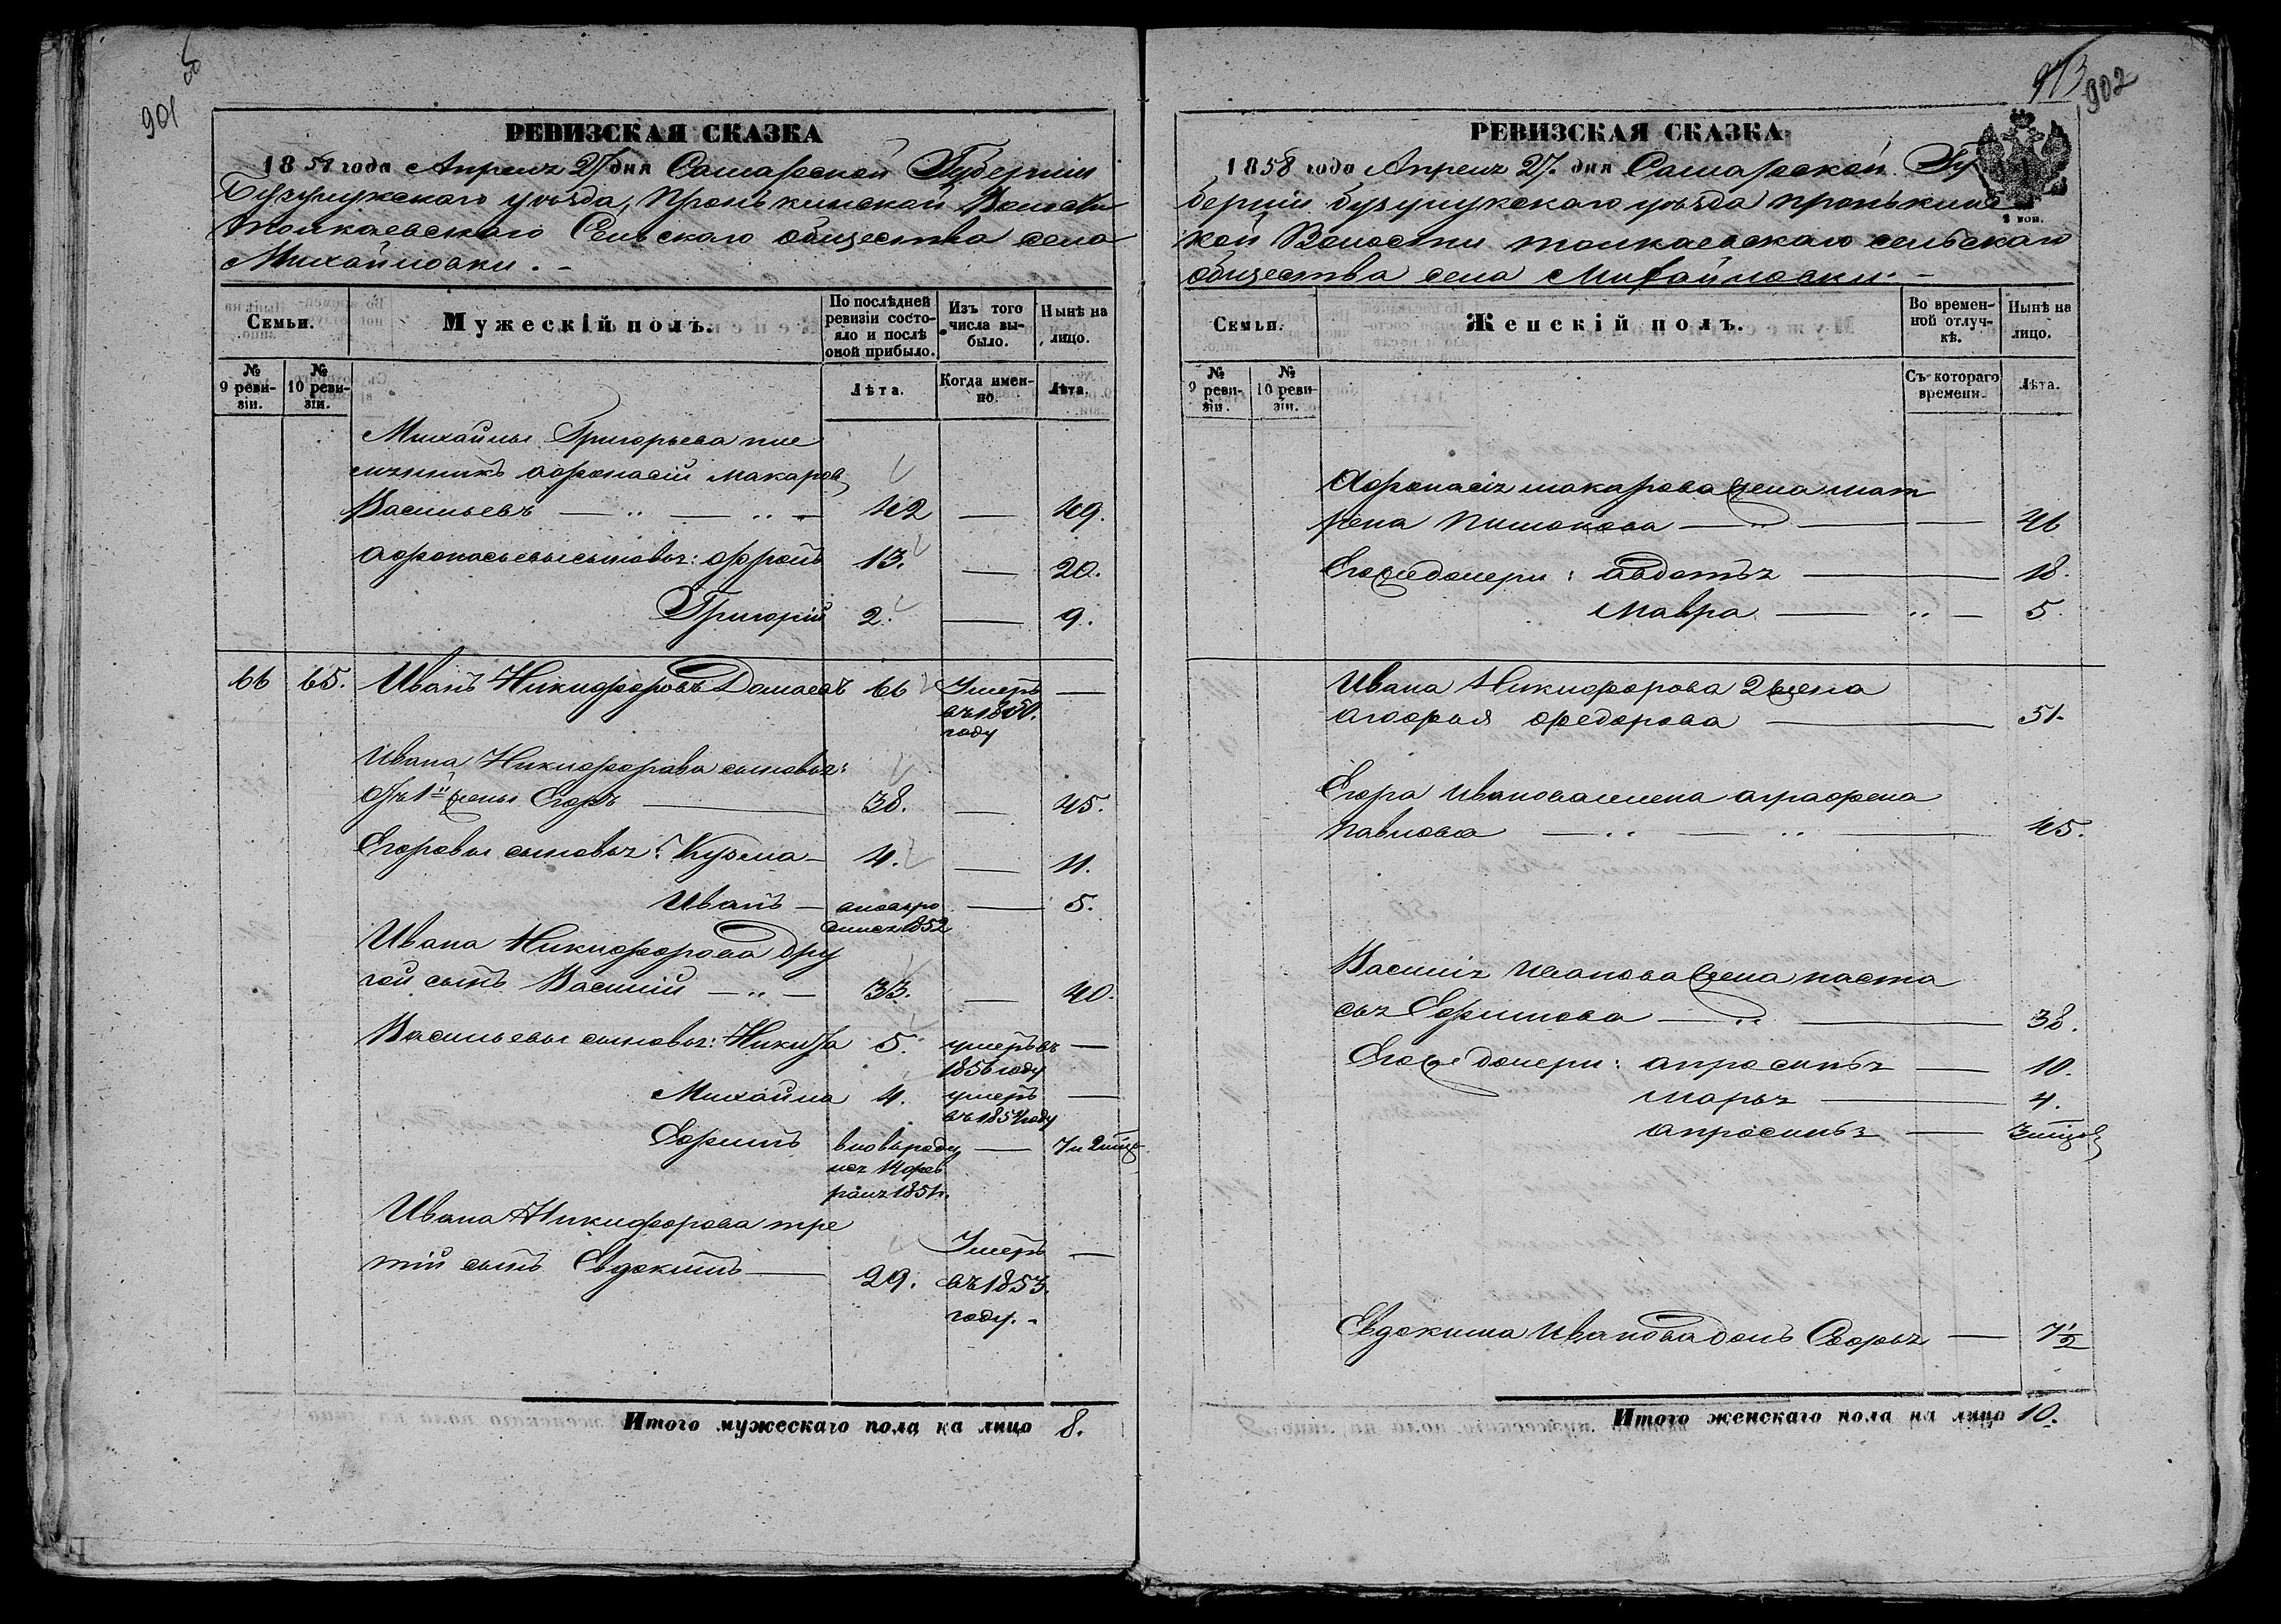 901
РЕВИЗСКАЯ СКАЗКА
1858 года Апреля 27 дня Самарской Губерніи
Бузулукскаго уѣзда, Пронькинской Волости
толкаевскаго Сельскаго общества села
Михайловки. -
Семьи.
Мужескій полъ.
По послѣдней ревизіи состояло и послѣ оной прибыло.
Изъ того числа выбыло.
Нынѣ на лицо.
№ 9 ревизіи.
№ 10 ревизіи.
Лѣта.
Когда именно.
Лѣта.
Михайлы Григорьева пле
мянникъ афонасій макаровъ
Васильевъ — 42 — 49.
афонасьевы сыновья: 13. — 20.
Григорій 2. — 9.
66 65. Иванъ Никифоровъ 66 Умеръ —
въ 1850.
году
Ивана Никифорова сыновья:
отъ 1й жены Егоръ — 38. — 45.
Егоровы сыновья: Кузма — 4. — 11.
Иванъ — вновь ро — 5.
дился 1852
Ивана Никифорова дру
гой сынъ Василій — 33. — 40.
Васильевы сыновья: Никита 5. умеръ въ —
1856 году
Михайла 4. умеръ —
въ 1854 году
Ефимъ вновь роди — 7 и 2 мѣц
лся 14 фев
раля 1851 г.
Ивана Никифорова тре
тій сынъ Евдокимъ — 29. Умеръ —
въ 1853.
году. -
Итого мужескаго пола на лицо 8.
902
РЕВИЗСКАЯ СКАЗКА
1858 года Апреля 27. дня Самарской Гу
берніи бузулукскаго уѣзда пронькинс
кой Волости толкаевскаго сельскаго
общества села Михайловки. -
Семьи.
Женскій полъ.
Во временной отлучкѣ.
Нынѣ на лицо.
№ 9 ревизіи.
№ 10 ревизіи.
Съ котораго времени.
Лѣта.
Афонасія макарова жена мат
рена — 46
Егоже дочери: авдотья — 18.
Мавра — 5.
Ивана Никифорова 2 жена
агафья федорова — 51.
Егора Иванова жена аграфена
павлова — 45.
Василія Иванова жена наста
сья Ефимова — 38.
Егоже дочери: апросинья — 10.
марья — 4.
апросинья — 3 мѣцов
Евдокима Иванова дочь — 7½
Итого женскаго пола на лицо 10.